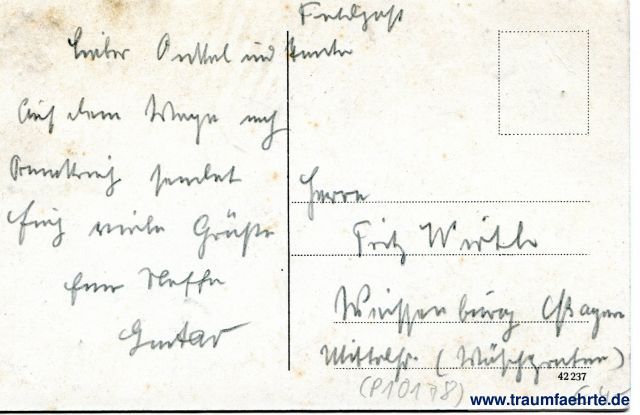 Feldpost
Lieber Onkel und Tante
Auf dem Wege nach
Frankreich sendet
Euch viele Grüße
Euer Neffe
Gustav
Herrn
Fritz Wirth
Weissenburg Bayern
Mittelstr. (Wäschgraben)
42 237
(P10178)
www.traumfaehrte.de